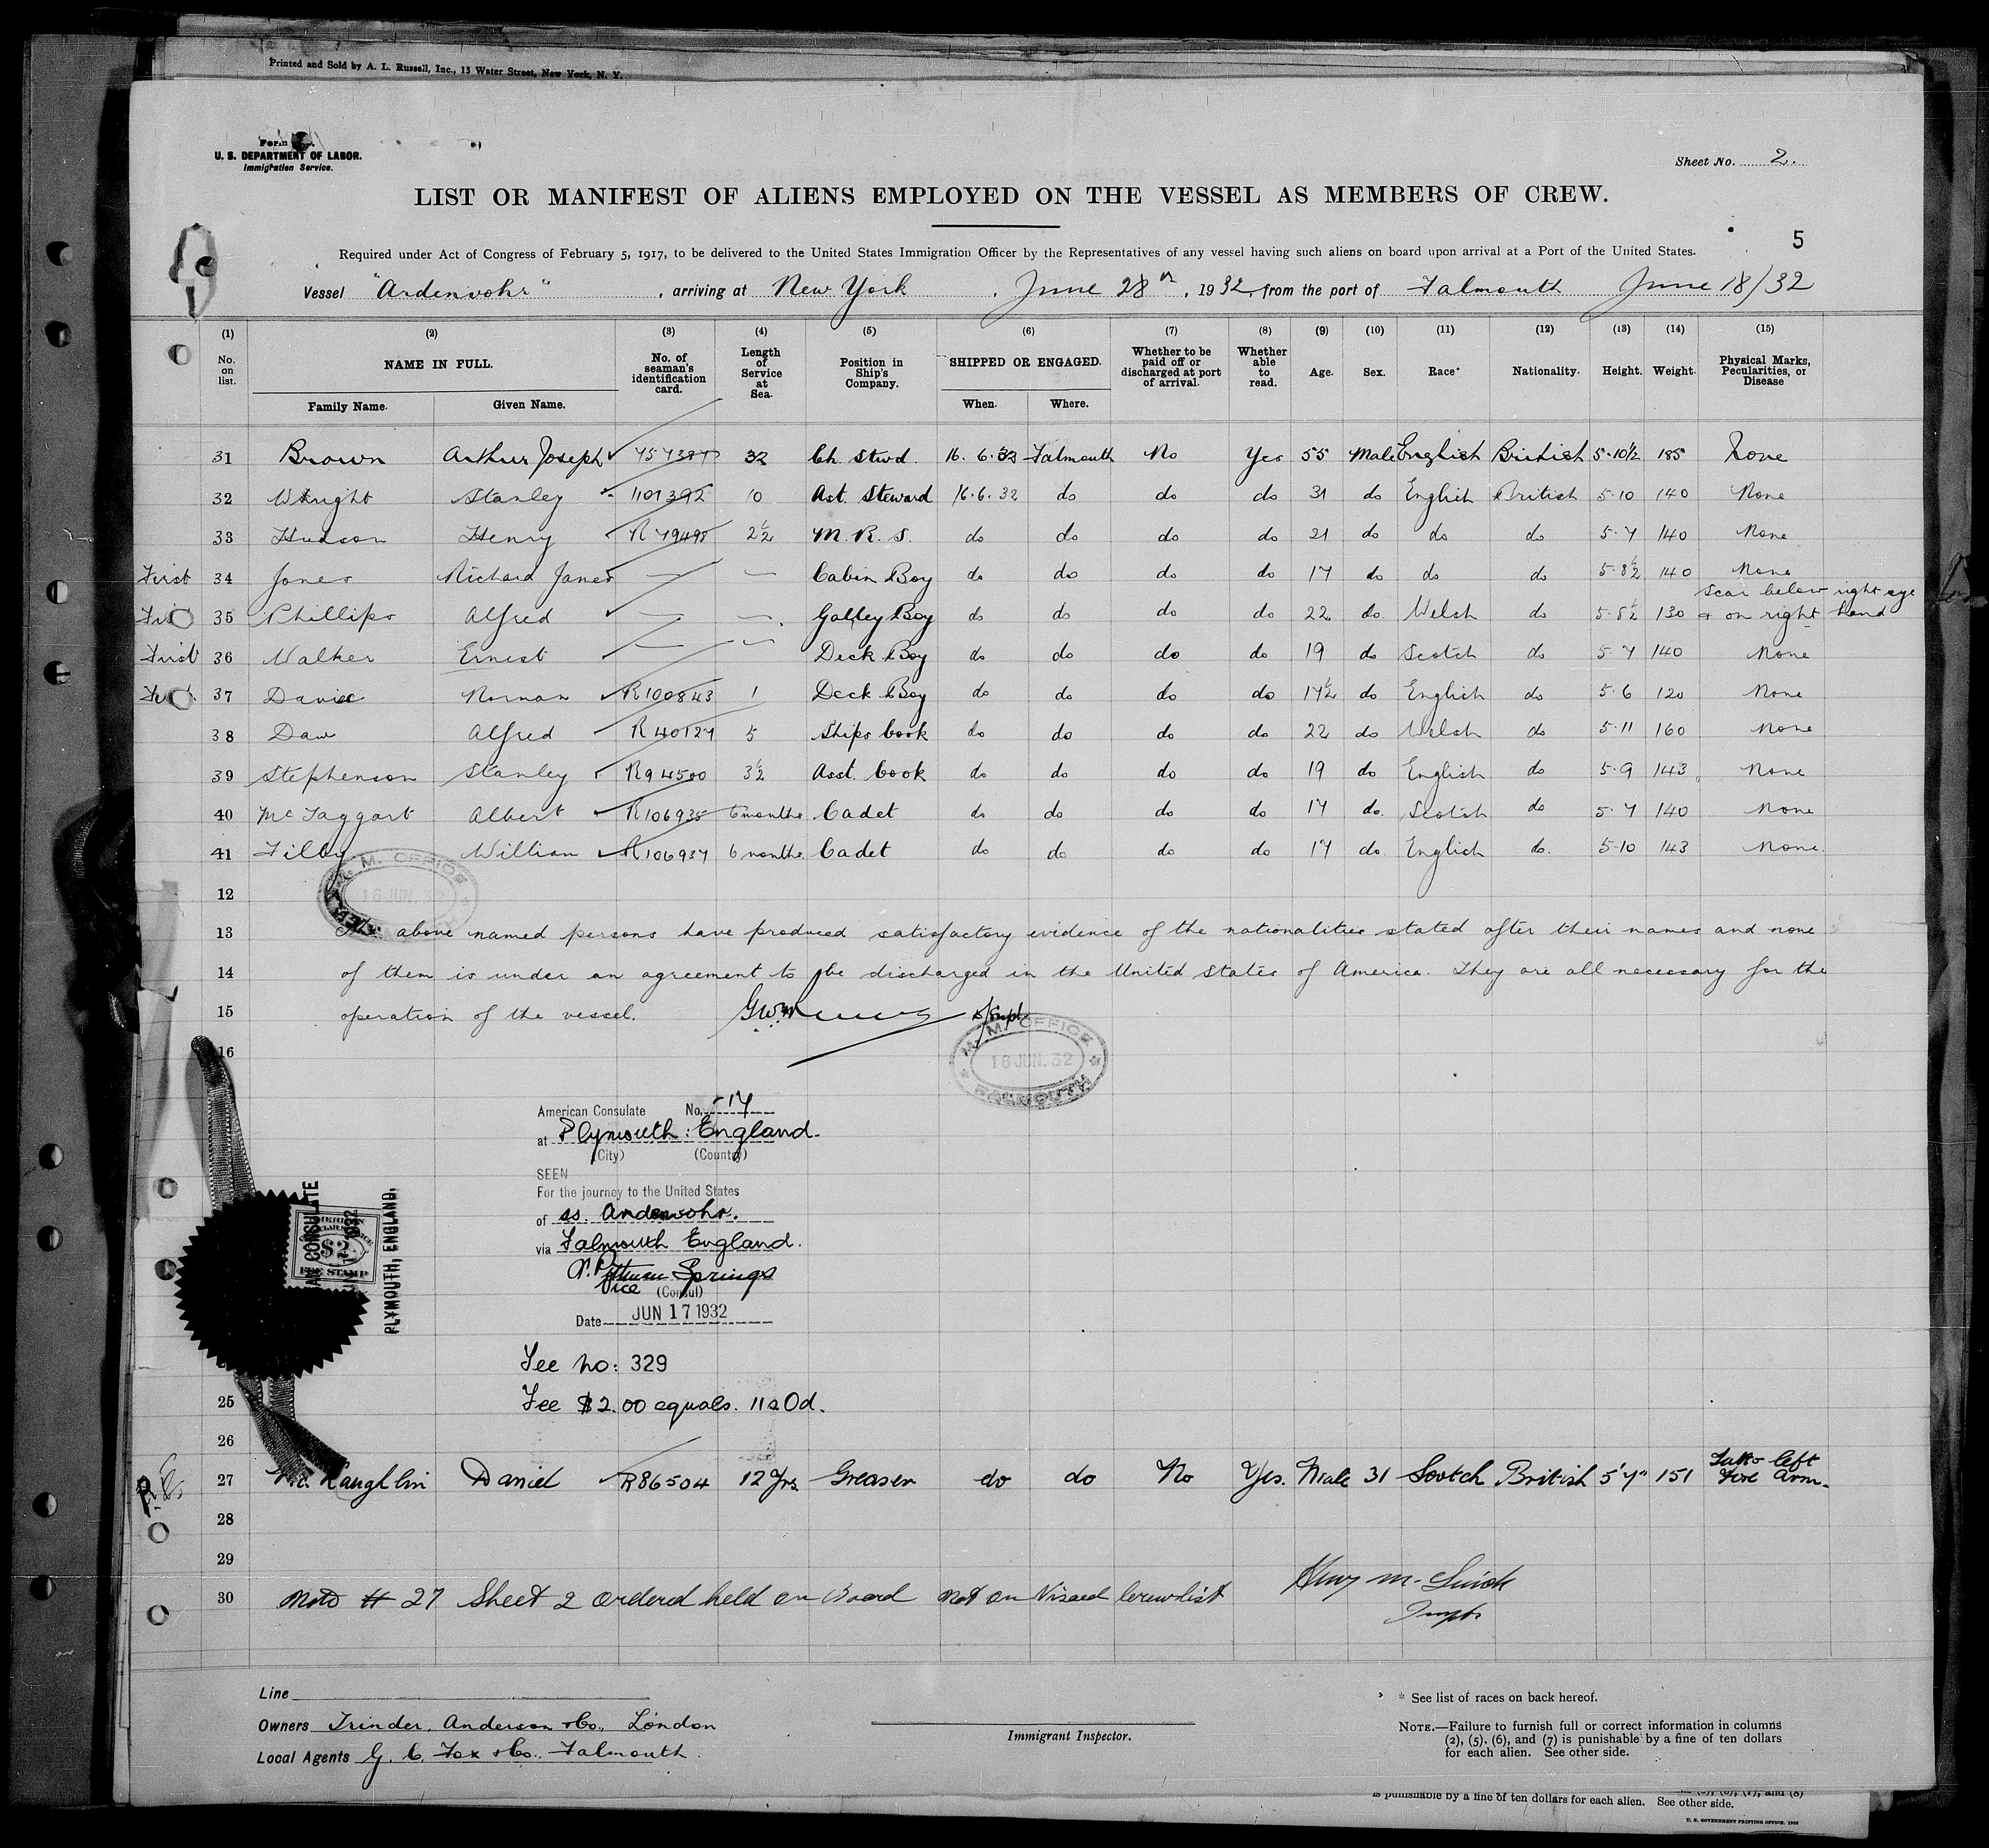 Printed and Sold by A. L. Russell, Inc., 13 Water Street, New York, N. Y.
Form
U. S. DEPARTMENT OF LABOR.
Immigration Service.
Sheet No. 2.
LIST OR MANIFEST OF ALIENS EMPLOYED ON THE VESSEL AS MEMBERS OF CREW.
5
Required under Act of Congress of February 5, 1917, to be delivered to the United States Immigration Officer by the Representatives of any vessel having such aliens on board upon arrival at a Port of the United States.
Vessel "Ardenvohr", arriving at New York, June 28th, 1932, from the port of Falmouth June 18/32
(1) (2) (3) (4) (5) (6) (7) (8) (9) (10) (11) (12) (13) (14) (15)
No. on list. NAME IN FULL. Family Name. Given Name. No. of seaman's identification card. Length of Service at Sea. Position in Ship's Company. SHIPPED OR ENGAGED. When. Where. Whether to be paid off or discharged at port of arrival. Whether able to read. Age. Sex. Race* Nationality. Height. Weight. Physical Marks, Pecularities, or Disease
31 Brown Arthur Joseph 32 Ch. Stwd. 16. 6. 32 Falmouth No Yes 55 Male English British 5-10½ 185 None
32 Wright Stanley 1101392 10 Ast. Steward 16.6.32 do do do 31 do English British 5-10 140 None
33 Hudson Henry R 79498 2½ M. R. S. do do do do 21 do do do 5-7 140 None
First 34 Jones Richard James — — Cabin Boy do do do do 17 do do do 5-8½ 140 None
35 Phillips Alfred — — Galley Boy do do do do 22 do Welsh do 5-8½ 130 Scar below right eye + on right hand
First 36 Walker Ernest — — Deck Boy do do do do 19 do Scotch do 5-7 140 None
37 Davies Norman R100843 1 Deck Boy do do do do 17½ do English do 5-6 120 None
38 Daw Alfred R 40127 5 Ships Cook do do do do 22 do Welsh do 5-11 160 None
39 Stephenson Stanley R94500 3½ Asst. Cook do do do do 19 do English do 5-9 143 None
40 McTaggart Albert R106935 6 months Cadet do do do do 17 do. Scotch do 5-7 140 None
41 Filby William R106937 6 months Cadet do do do do 17 do. English do. 5-10 143 None.
M. M. OFFICE
16 JUN. 32
12
13 The above named persons have produced satisfactory evidence of the nationalities stated after their names and none
14 of them is under an agreement to be discharged in the United States of America. They are all necessary for the
15 operation of the vessel.
16
M. M. OFFICE
16 JUN. 32
FALMOUTH
American Consulate No. -17
at Plymouth: England.
(City) (Country)
SEEN
For the journey to the United States
of ss. Ardenvohr.
via Falmouth England.
Springs
Vice (Consul)
Date JUN 17 1932
AMERICAN
$2
FEE STAMP
CONSULATE
1932
PLYMOUTH, ENGLAND.
Fee no: 329
25 Fee $2.00 equals. 11s 0d.
26
27 McLaughlin Daniel R86504 12 Yrs. Greaser do do No Yes. Male 31 Scotch British 5'7" 151 left arm.
28
29
30 Note # 27 Sheet 2 ordered held on Board not on Visaed Crewlist
Line
Owners Trinder, Anderson & Co., London
Local Agents G. C. Fox & Co. Falmouth.
Immigrant Inspector.
* See list of races on back hereof.
NOTE.—Failure to furnish full or correct information in columns
(2), (5), (6), and (7) is punishable by a fine of ten dollars
for each alien. See other side.
is punishable by a fine of ten dollars for each alien. See other side.
U. S. GOVERNMENT PRINTING OFFICE